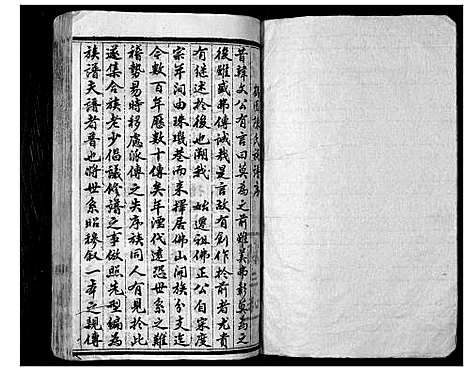 鶴園陳氏族譜序
昔韓文公有言曰莫為之前雖美弗彰莫為之
後雖盛弗傳誠哉是言故有創作於前者尤貴
有継述於後也溯我 始遷祖佛正公自宋度
宗年间由珠璣巷而来擇居佛山開族分支迄
今數百年歷數十傳矣年湮代遠恐世系之難
稽勢易時移慮派傳之失序族同人有見於此
遂集合族老少倡議修譜之事倣照先型編為
族譜夫譜者普也將世系昭穆叙一本之親傳